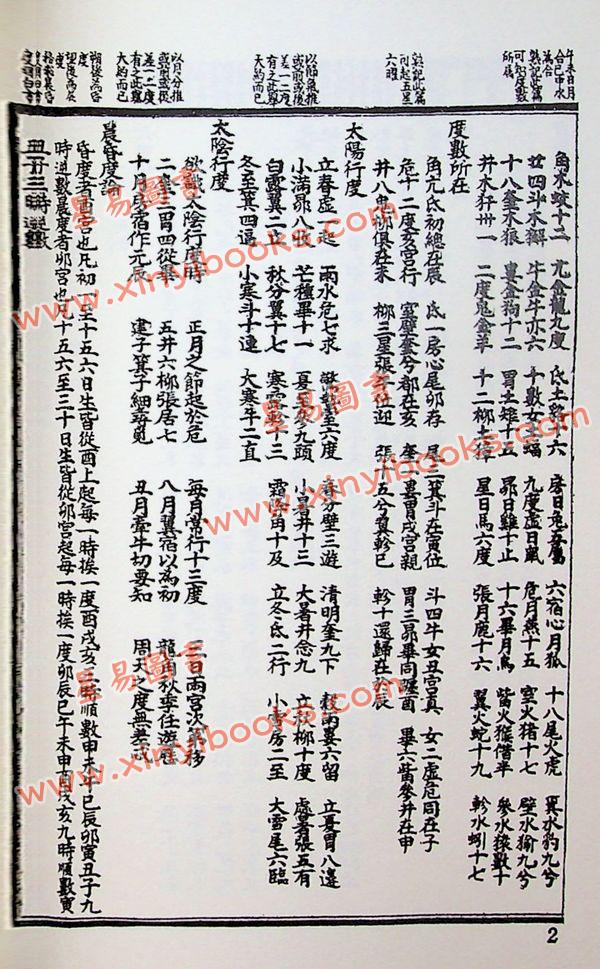 午未日月
合巳申水
為合
熟記此篇
可知度數
所屬
熟記此篇
可起五星
六曜
以節氣推
或前或後
差一二度
有之此舉
大約而已
以月分推
或前或從
差一二度
有之此舉
大約而已
朔後為昏
度
望後為晨
度
角木蛟十二 亢金龍九度 氐土貉十六 房日兔五屬 六宿心月狐 十八尾火虎 箕水豹九兮
廿四斗木獬 牛金牛亦六 十數女土蝠 九度虛日鼠 危月燕十五 室火猪十七 壁水㺄九兮
十八奎木狼 婁金狗十二 胃土雉十五 昴日雞十止 十六畢月烏 觜火猴偕半 參水猿數十
井木犴卅一 二度鬼金羊 十二柳土獐 星日馬六度 張月鹿十六 翼火蛇十九 軫水蚓十七
度數所在
角亢氐初總在辰 氐一房心尾卯存 尾三箕斗在寅位 斗四牛女丑宮真 女二虛危同在子
危十二度亥宮行 室壁奎兮都在亥 奎二婁胃戌宮親 胃三昴畢同躔酉 畢六觜參井在申
井八鬼柳俱在未 柳三星張午位迎 張十五兮翼軫巳 軫十還歸在於辰
太陽行度
立春虛一起 雨水危七求 驚蟄室六度 春分壁三遊 清明奎九下 穀雨婁六留 立夏胃八邊
小滿昴八收 芒種畢十一 夏至參九頭 小暑井十三 大暑井念九 立秋柳十度 處暑張五有
白露翼二止 秋分翼十七 寒露軫十三 霜降角十及 立冬氐二行 小雪房二至 大雪尾六臨
冬至箕四逼 小寒斗十連 大寒牛二直
太陰行度
欲識太陰行度時 正月之節起於危 每月常行十三度 三日兩宮次第移
二奎三胃四從畢 五井六柳張居七 八月翼宿以為初 龍角秋季任遊歷
十月房宿作元辰 建子箕子細尋覓 丑月牽牛切要知 周天之度無差忒
晨昏度論
昏度者酉宮也凡初一至十五六日生皆從酉上起每一時挨一度酉戌亥三時順數申未午巳辰卯寅丑子九
時逆數晨度者卯宮也凡十五六至三十日生皆從卯宮起每一時挨一度卯辰巳午未申酉戌亥九時順數寅
丑子三時逆數
2
星易圖書
www.xinyibooks.com
星易圖書
www.xinyibooks.com
星易圖書
www.xinyibooks.com